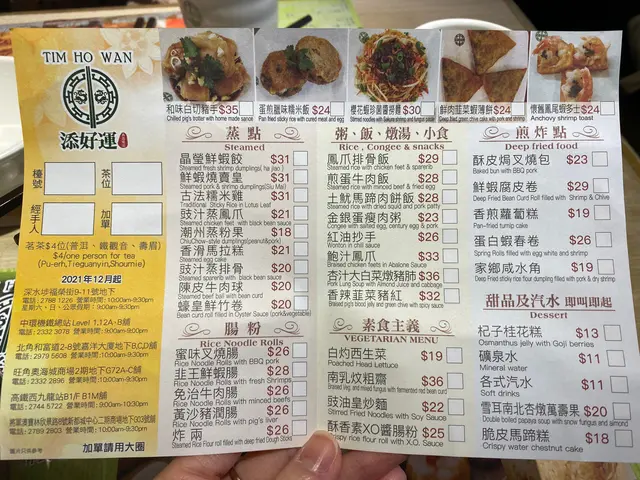 TIM HO WAN
添好運
檯號
茶位
經手人
加單
茗茶$4位(普洱、鐵觀音、壽眉)
$4/one person for tea
(Pu-erh,Tieguanyin,Shoumei)
2021年12月起
深水埗福榮街9-11號地下
電話: 2788 1226 營業時間: 10:00am-9:30pm
中環機鐵總站 Level 1,12A-B舖
電話: 2332 3078 營業時間: 9:00am-9:30pm
北角和富道2-8號嘉洋大廈地下B,C,D舖
電話: 2979 5608 營業時間: 10:00am-9:30pm
旺角奧海城商場2期地下G72A-C舖
電話: 2332 2896 營業時間: 10:00am-9:30pm
高鐵西九龍站B1/F B1M舖
電話: 2744 5722 營業時間: 9:00am-10:30pm
電話: 2789 2803 營業時間: 10:00am-9:30pm
加單請用大圈
和味白切豬手$35
Chilled pig's trotter with home made sance
蛋煎臘味糯米飯 $24
Pan fried sticky rice with cured meat and egg
櫻花蝦珍菌醬撈麵 $30
鮮肉韭菜蝦薄餅$24
懷舊鳳尾蝦多士$24
Anchovy shrimp toast
蒸 點
Steamed
晶瑩鮮蝦餃 $31
Steamed fresh shrimp dumplings( ha jiao )
鮮蝦燒賣皇 $31
Steamed pork & shrimp dumplings(Siu Mai)
古法糯米雞 $31
Traditional Sticky Rice in Lotus Leaf
豉汁蒸鳳爪 $21
Steamed chicken feet with black bean sauce
潮州蒸粉果 $18
Chiu Chow-style dumplings(peanut&pork)
香滑馬拉糕 $21
Steamed egg cake
豉汁蒸腩排 $20
Steamed spareribs with black bean sauce
陳皮牛肉球 $20
Steamed beef ball with bean curd
蠔皇鮮竹卷 $20
Bean curd roll filled in Oyster Sauce (pork&vegetable)
腸 粉
Rice Noodle Rolls
蜜味叉燒腸 $26
Rice Noodle Rolls with BBQ pork
韭王鮮蝦腸 $28
Rice Noodle Rolls with fresh Shrimps
免治牛肉腸 $26
Rice Noodle Rolls with minced beefs
黃沙豬潤腸 $26
Rice Noodle Rolls with pig's liver
炸 兩 $26
Steamed Rice Flour roll filled with deep fried Dough Sticks
粥、飯、燉湯、小食
Rice , Congee & snacks
鳳爪排骨飯 $29
Steamed rice with chicken feet & sparerib
煎蛋牛肉飯 $28
Steamed rice with minced beef & fried egg
土魷馬蹄肉餅飯 $28
Steamed rice with dried squid and pork patty
金銀蛋瘦肉粥 $23
Congee with salted egg, century egg & pork
紅油抄手 $26
Wonton in chili sauce
鮑汁鳳爪 $33
Braised chicken feets in Abalone Sauce
杏汁大白菜燉豬肺 $36
Pork Lung Soup with Almond Juice and cabbage
香辣韮菜豬紅 $32
Braised pig's blood jelly and green chive with spicy sauce
素食主義
VEGETARIAN MENU
白灼西生菜 $19
Poached Head Lettuce
南乳炆粗齋 $36
Stewed veg and mixed fungus with fermented red bean curd
豉油皇炒麵 $22
Stirred Fried Noodles with Soy Sauce
酥香素XO醬腸粉 $25
Crispy rice flour roll with X.O. Sauce
煎炸點
Deep fried food
酥皮焗叉燒包 $23
Baked bun with BBQ pork
鮮蝦腐皮卷 $29
Bean Curd Roll Filled with Shrimp & Chive
香煎蘿蔔糕 $19
Pan-fried turnip cake
蛋白蝦春卷 $26
Spring Rolls filled with egg white and shrimp
家鄉咸水角 $19
Deep fried sticky rice flour dumpling filled with pork & dry shrimp
甜品及汽水 即叫即起
Dessert
杞子桂花糕 $13
Osmanthus jelly with Goji berries
礦泉水 $11
Mineral water
各式汽水 $11
Soft drinks
雪耳南北杏燉萬壽果 $20
Double boiled papaya soup with snow fungus and almond
脆皮馬蹄糕 $18
Crispy water chestnut cake